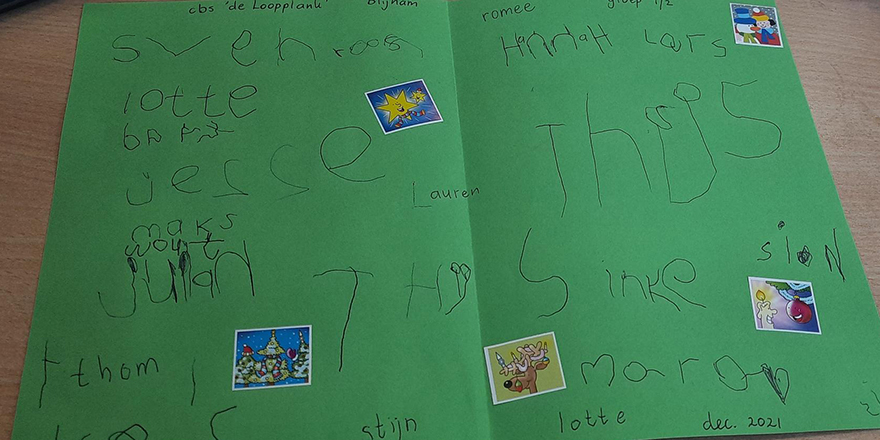 cbs 'de Loopplank' Blijham
sven roos
lotte
jesse
Lauren
maks
wout
Julian
thom
stijn
romee groep 1/2
Hannah Lars
Thijs
Sinke
sion
mara
lotte dec. 2021